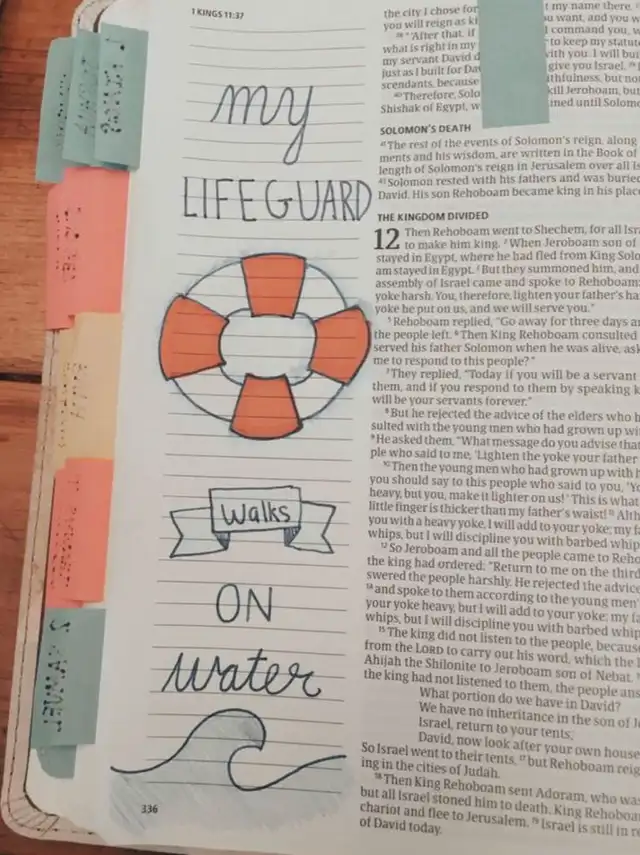 1 KINGS 11:37
my
LIFEGUARD
walks
ON
water
336
the city I chose for
my name there.
you will reign as ki
u want, and you w
38 "'After that, if
I command you, w
what is right in my
to keep my statut
my servant David d
with you. I will bui
just as I built for Dav
give you Israel.
scendants, because
ithfulness, but no
40 Therefore, Solo
kill Jeroboam, but
Shishak of Egypt, w
ined until Solomo
SOLOMON'S DEATH
41 The rest of the events of Solomon's reign, along
ments and his wisdom, are written in the Book of
length of Solomon's reign in Jerusalem over all Is
43 Solomon rested with his fathers and was buried
David. His son Rehoboam became king in his place
THE KINGDOM DIVIDED
12 Then Rehoboam went to Shechem, for all Isra
to make him king. 2 When Jeroboam son of
stayed in Egypt, where he had fled from King Solo
am stayed in Egypt. 3 But they summoned him, and
assembly of Israel came and spoke to Rehoboam:
yoke harsh. You, therefore, lighten your father's ha
yoke he put on us, and we will serve you."
5 Rehoboam replied, "Go away for three days a
the people left. 6 Then King Rehoboam consulted
served his father Solomon when he was alive, ask
me to respond to this people?"
7 They replied, "Today if you will be a servant
them, and if you respond to them by speaking k
will be your servants forever."
8 But he rejected the advice of the elders who h
sulted with the young men who had grown up wi
9 He asked them, "What message do you advise that
ple who said to me, 'Lighten the yoke your father
10 Then the young men who had grown up with h
you should say to this people who said to you, 'Yo
heavy, but you, make it lighter on us!' This is what
little finger is thicker than my father's waist! 11 Alth
you with a heavy yoke, I will add to your yoke; my fa
whips, but I will discipline you with barbed whip
12 So Jeroboam and all the people came to Reho
the king had ordered: "Return to me on the third
swered the people harshly. He rejected the advice
14 and spoke to them according to the young men'
your yoke heavy, but I will add to your yoke; my fa
whips, but I will discipline you with barbed whip
15 The king did not listen to the people, because
from the LORD to carry out his word, which the
Ahijah the Shilonite to Jeroboam son of Nebat.
the king had not listened to them, the people ans
What portion do we have in David?
We have no inheritance in the son of J
Israel, return to your tents;
David, now look after your own house
So Israel went to their tents, 17 but Rehoboam reig
ing in the cities of Judah.
18 Then King Rehoboam sent Adoram, who was
but all Israel stoned him to death. King Rehoboa
chariot and flee to Jerusalem. 19 Israel is still in re
of David today.